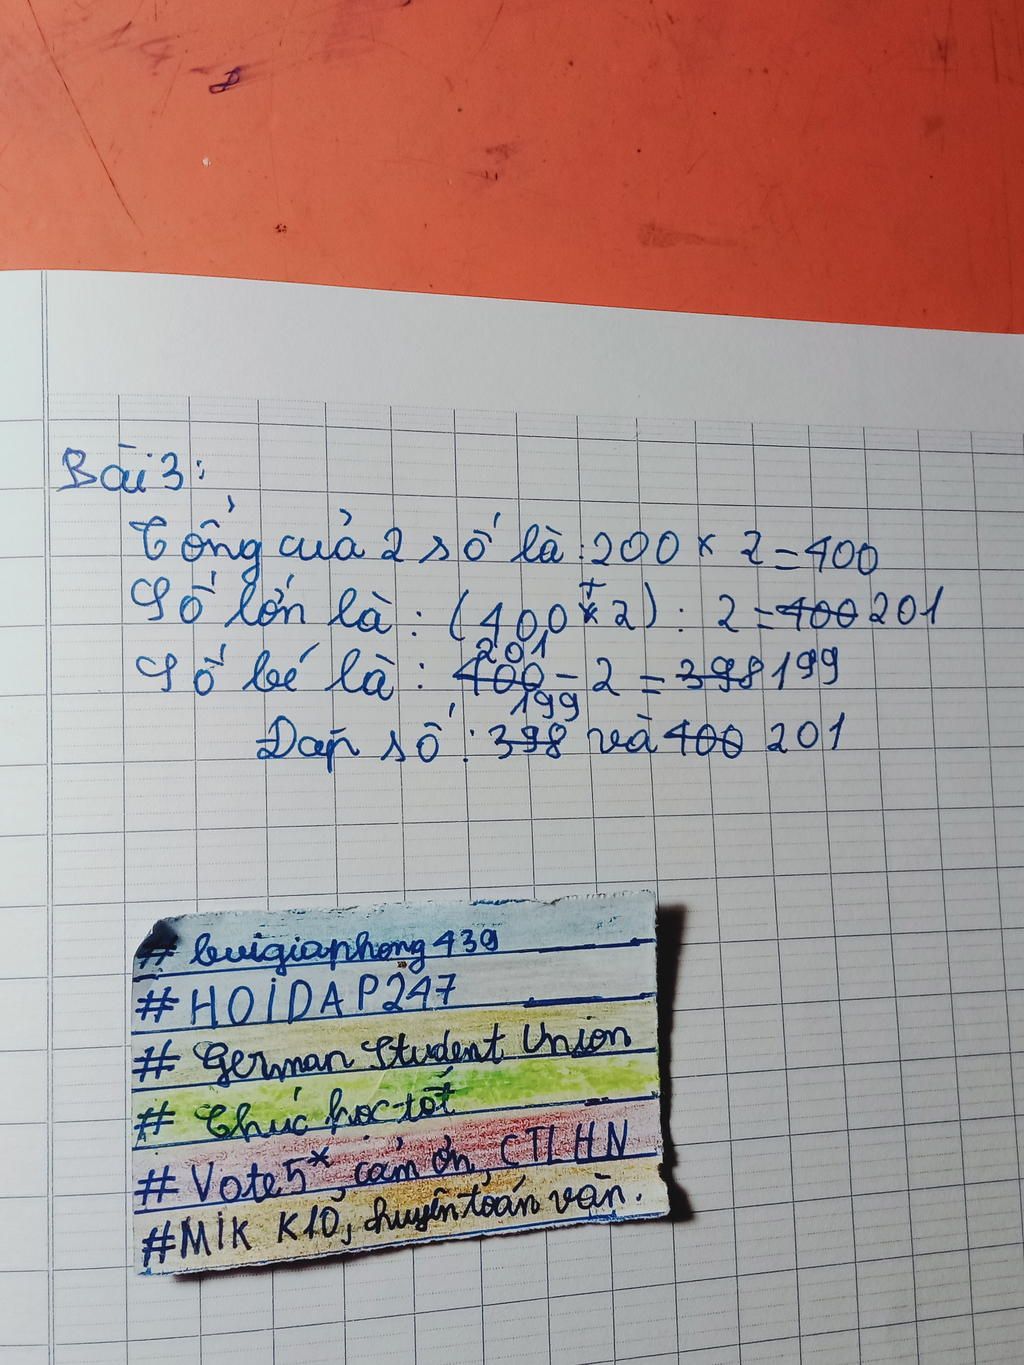 Bài 3:
Tổng của 2 số là: 200 x 2 = 400
Số lớn là: (400 + 2) : 2 = 400 201
Số bé là: 400 201 - 2 = 398 199
Đáp số: 398 199 và 400 201
# buigiaphong439
# HOIDAP247
# German Student Union
# Chúc học tốt
# Vote 5*, cảm ơn, CTLHN
# MIK K10, chuyên toán văn.